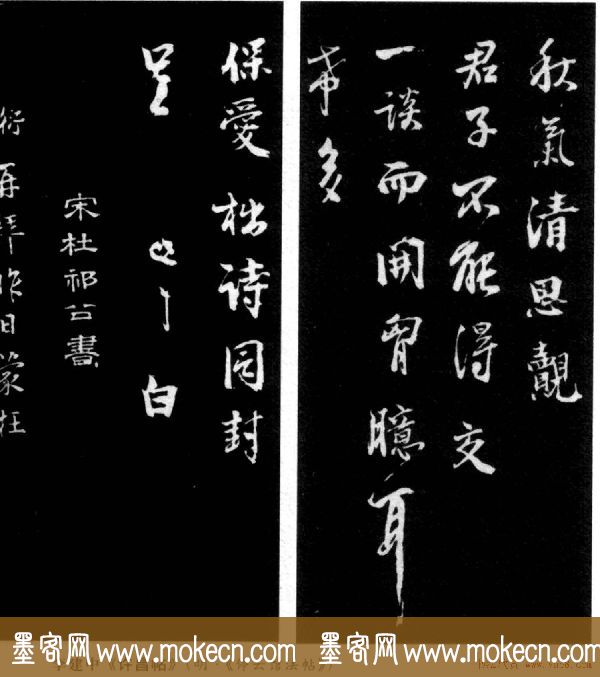 秋氣清思覿
君子不能得交
一談而開胷臆耳
希多
保愛拙诗同封
呈 白
宋杜祁公書
衍再拜昨日蒙枉
墨客网 www.mokecn.com 墨客网 www.mokecn.com
李建中《许昌帖》